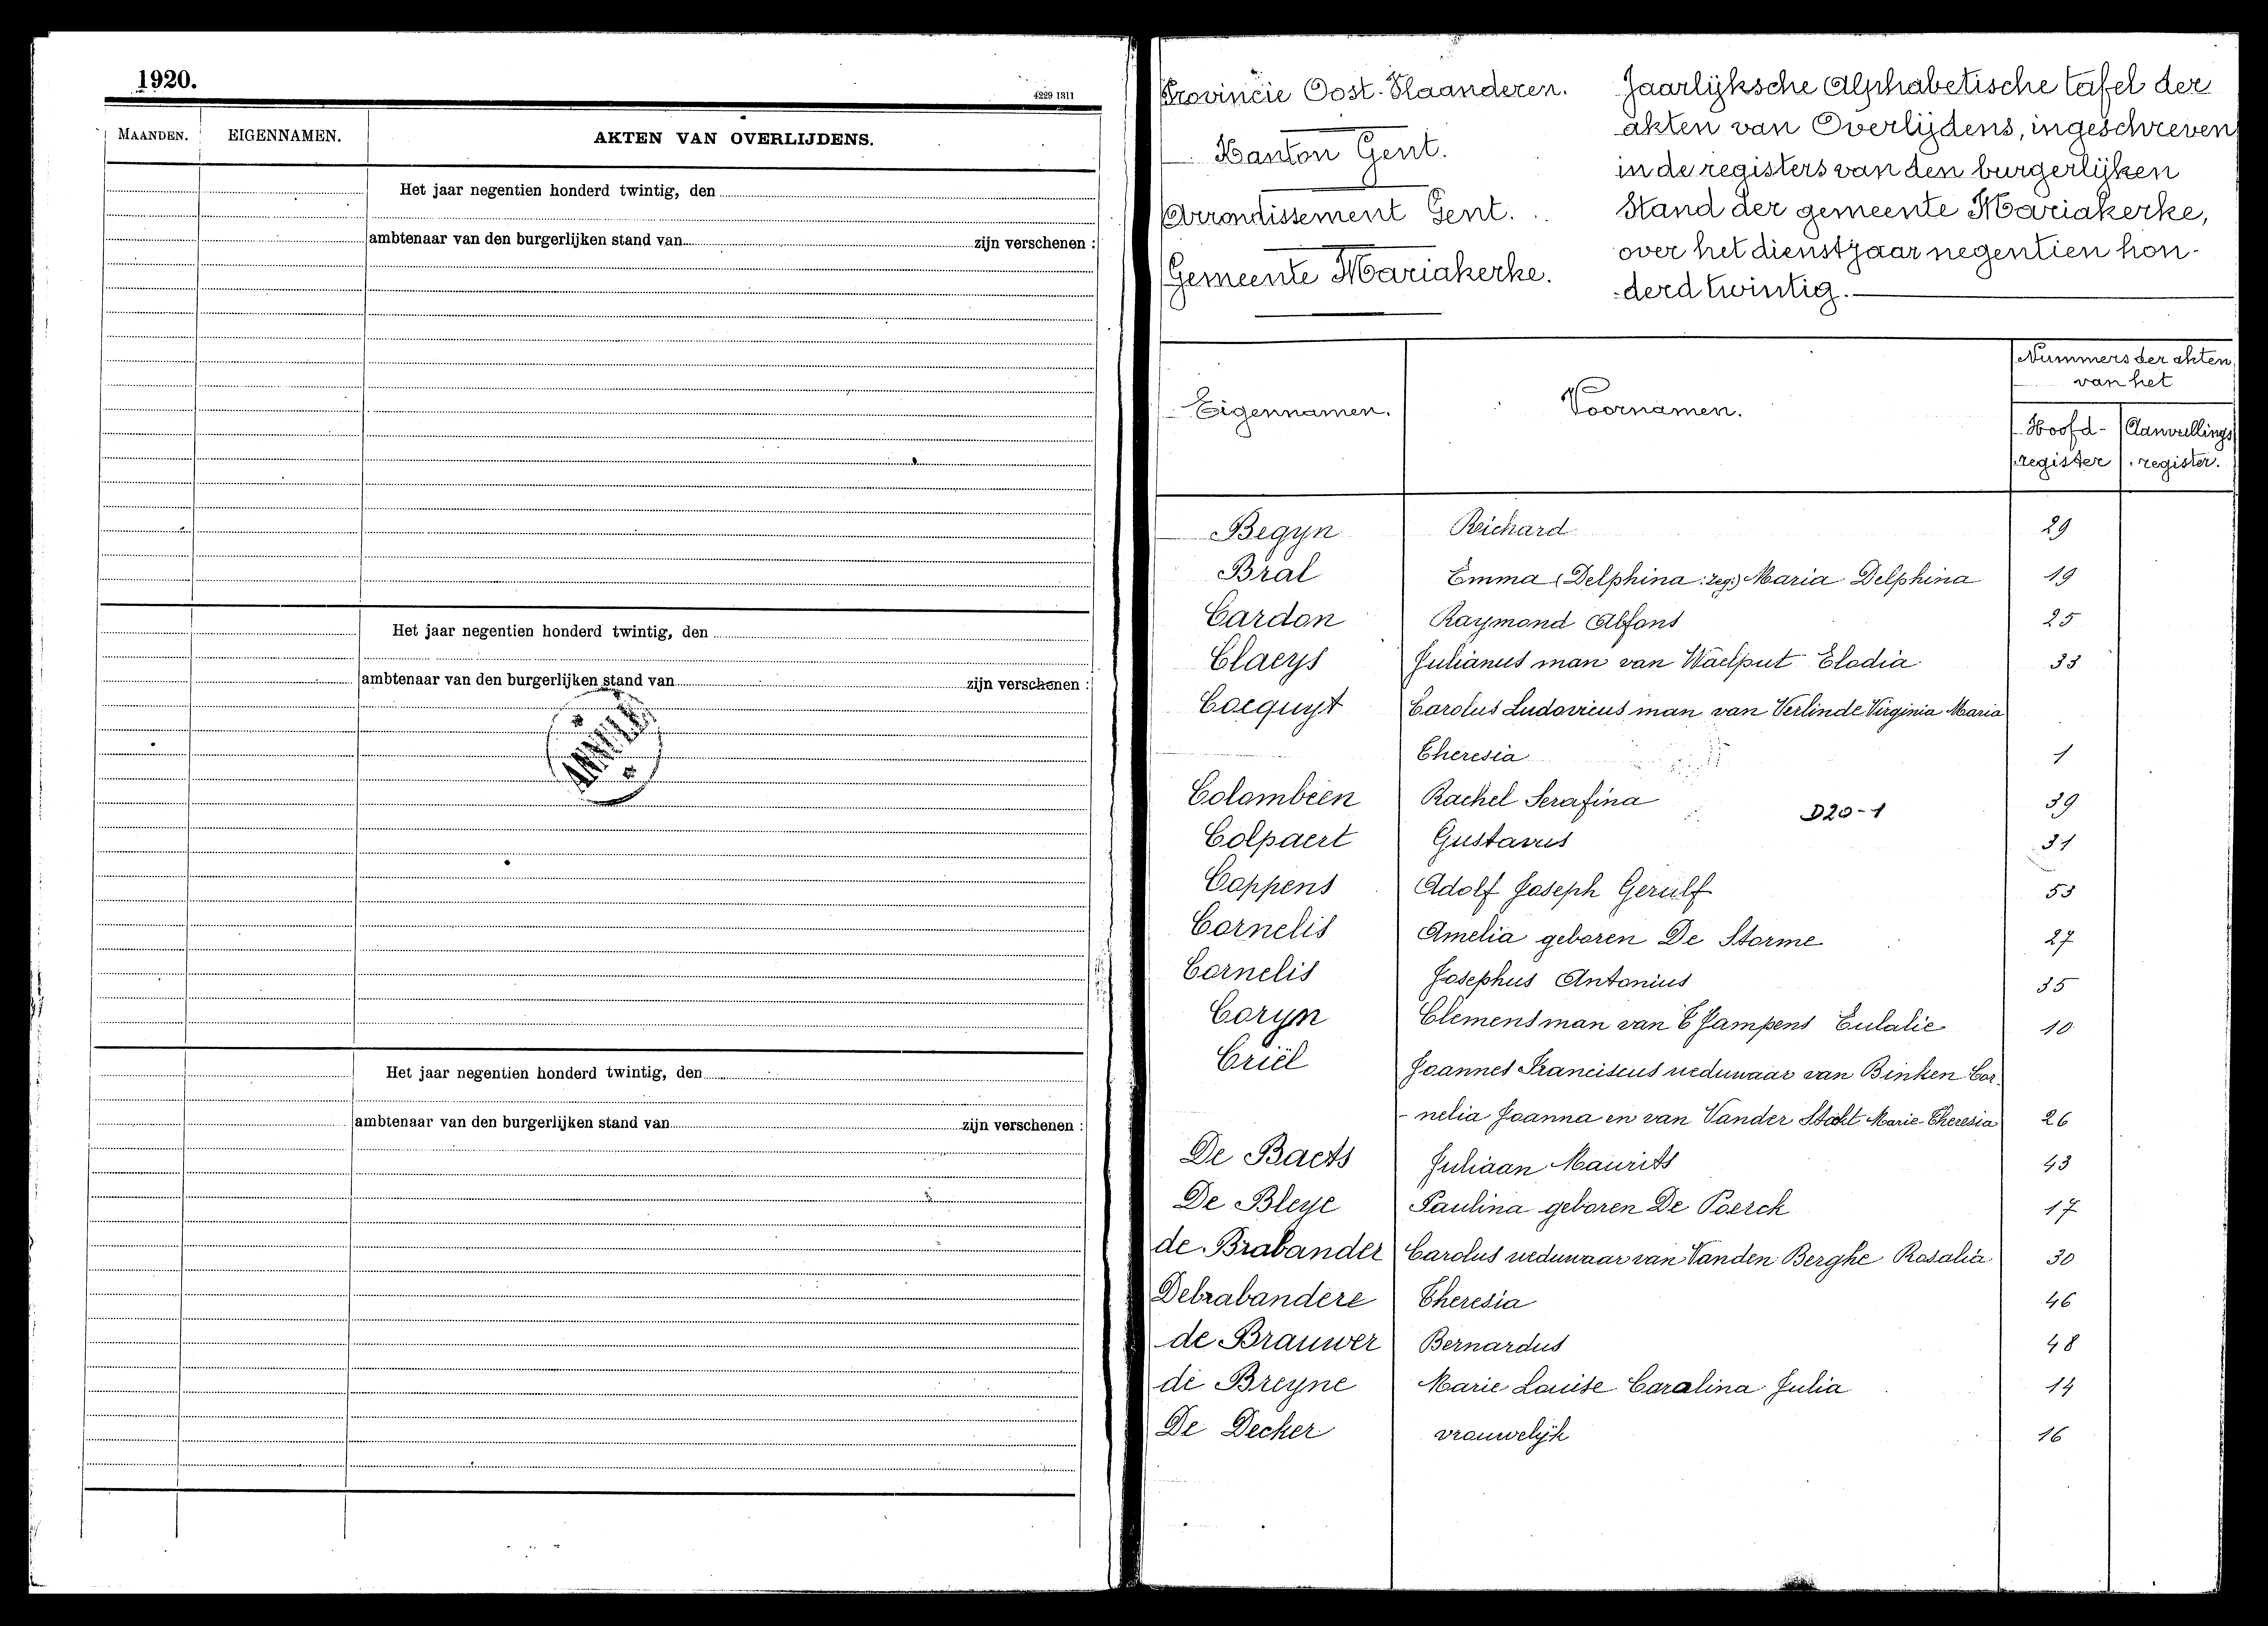 1920.
4229 1311
MAANDEN. EIGENNAMEN. AKTEN VAN OVERLIJDENS.
Het jaar negentien honderd twintig, den
ambtenaar van den burgerlijken stand van zijn verschenen :
Het jaar negentien honderd twintig, den
ambtenaar van den burgerlijken stand van zijn verschenen :
ANNULÉ
Het jaar negentien honderd twintig, den
ambtenaar van den burgerlijken stand van zijn verschenen :
Provincie Oost-Vlaanderen.
Kanton Gent.
Arrondissement Gent.
Gemeente Mariakerke.
Jaarlijksche Alphabetische tafel der
akten van Overlijdens, ingeschreven
in de registers van den burgerlijken
Stand der gemeente Mariakerke,
over het dienstjaar negentien hon-
derd twintig.
Eigennamen. Voornamen. Nummers der akten
van het
Hoofd- Aanvullings
register register.
Begyn Reichard 29
Bral Emma (Delphina :zeg:) Maria Delphina 19
Cardon Raymond Alfons 25
Claeys Julianus man van Waelput Elodia 33
Cocquyt Carolus Ludovicus man van Verlinde Virginia Maria
Theresia 1
Colombeen Rachel Serafina 39
D20-1
Colpaert Gustavus 31
Coppens Adolf Joseph Gerulf 53
Cornelis Amelia geboren De Storme 27
Cornelis Josephus Antonius 35
Coryn Clemens man van T'Jampens Eulalie 10
Criël Joannes Franciscus weduwaar van Binken Cor-
-nelia Joanna en van Vander Marie-Theresia 26
De Baets Juliaan Maurits 43
De Bleye Paulina geboren De Poerck 17
de Brabander Carolus weduwaar van Vanden Berghe Rosalia 30
Debrabandere Theresia 46
de Brauwer Bernardus 48
de Breyne Marie Louise Caralina Julia 14
De Decker vrouwelijk 16